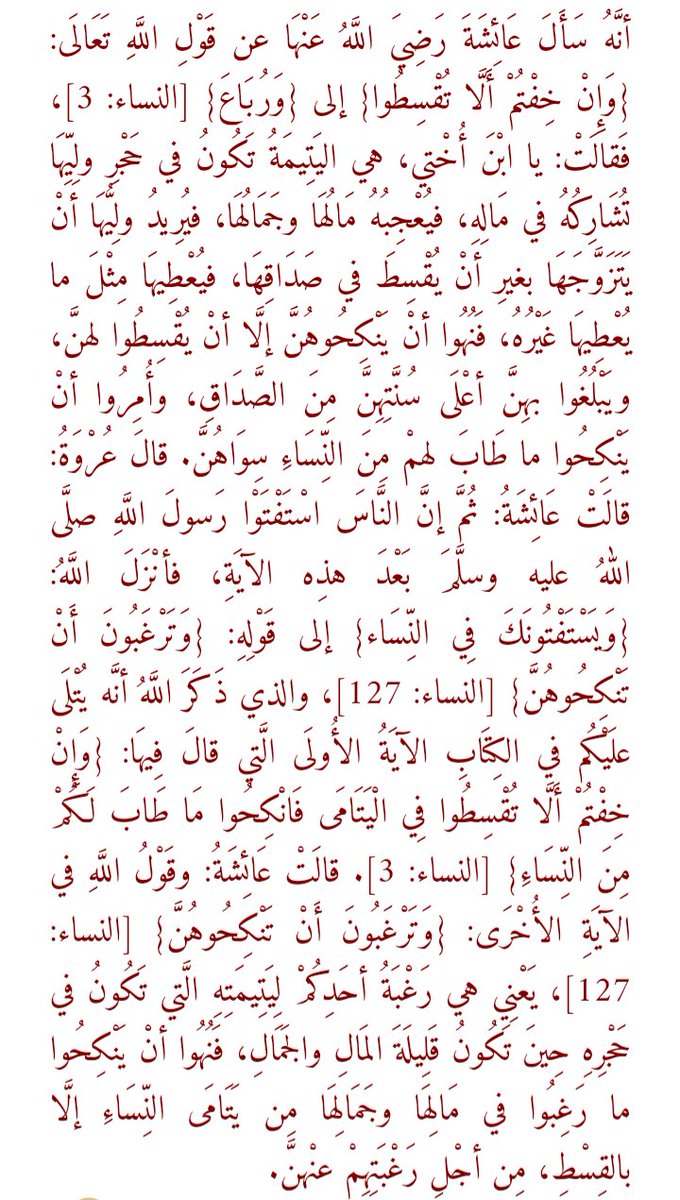 أنَّهُ سَأَلَ عَائِشَةَ رَضِيَ اللَّهُ عَنْهَا عن قَوْلِ اللَّهِ تَعَالَى:
{وَإِنْ خِفْتُمْ أَلَّا تُقْسِطُوا} إلى {وَرُبَاعَ} [النساء: 3]،
فَقالَتْ: يا ابْنَ أُخْتي، هي اليَتِيمَةُ تَكُونُ في حَجْرِ ولِيِّهَا
تُشَارِكُهُ في مَالِهِ، فيُعْجِبُهُ مَالُهَا وجَمَالُهَا، فيُرِيدُ ولِيُّهَا أنْ
يَتَزَوَّجَهَا بغيرِ أنْ يُقْسِطَ في صَدَاقِهَا، فيُعْطِيهَا مِثْلَ ما
يُعْطِيهَا غَيْرُهُ، فَنُهُوا أنْ يَنْكِحُوهُنَّ إلَّا أنْ يُقْسِطُوا لهنَّ،
ويَبْلُغُوا بهِنَّ أعْلَى سُنَّتِهِنَّ مِنَ الصَّدَاقِ، وأُمِرُوا أنْ
يَنْكِحُوا ما طَابَ لهمْ مِنَ النِّسَاءِ سِوَاهُنَّ. قالَ عُرْوَةُ:
قالَتْ عَائِشَةُ: ثُمَّ إنَّ النَّاسَ اسْتَفْتَوْا رَسولَ اللَّهِ صلَّى
اللهُ عليه وسلَّمَ بَعْدَ هذِه الآيَةِ، فأنْزَلَ اللَّهُ:
{وَيَسْتَفْتُونَكَ فِي النِّسَاء} إلى قَوْلِهِ: {وَتَرْغَبُونَ أَنْ
تَنْكِحُوهُنَّ} [النساء: 127]، والذي ذَكَرَ اللَّهُ أنَّه يُتْلَى
علَيْكُم في الكِتَابِ الآيَةُ الأُولَى الَّتي قالَ فِيهَا: {وَإِنْ
خِفْتُمْ أَلَّا تُقْسِطُوا فِي الْيَتَامَى فَانْكِحُوا مَا طَابَ لَكُمْ
مِنَ النِّسَاءِ} [النساء: 3]. قالَتْ عَائِشَةُ: وقَوْلُ اللَّهِ في
الآيَةِ الأُخْرَى: {وَتَرْغَبُونَ أَنْ تَنْكِحُوهُنَّ} [النساء:
127]، يَعْنِي هي رَغْبَةُ أحَدِكُمْ لِيَتِيمَتِهِ الَّتي تَكُونُ في
حَجْرِهِ حِينَ تَكُونُ قَلِيلَةَ المَالِ والجَمَالِ، فَنُهُوا أنْ يَنْكِحُوا
ما رَغِبُوا في مَالِهَا وجَمَالِهَا مِن يَتَامَى النِّسَاءِ إلَّا
بالقِسْطِ، مِن أجْلِ رَغْبَتِهِمْ عنْهنَّ.